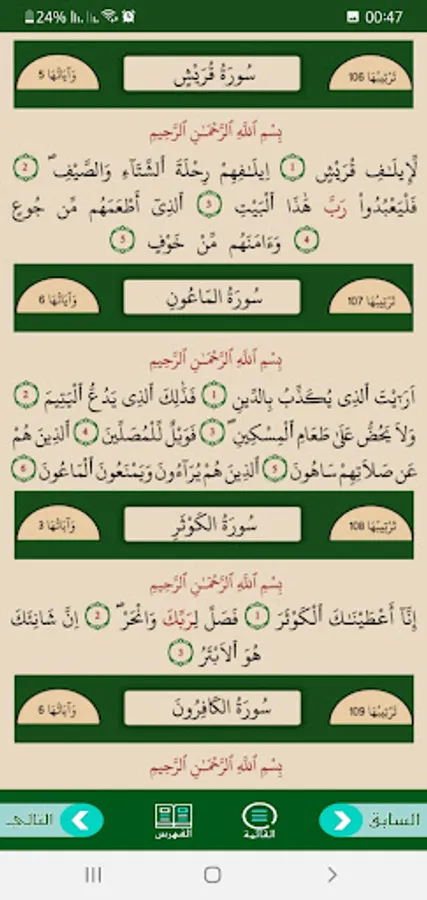 24% 00:47
وَآيَاتُهَا 5 سُورَةُ قُرَيْشٍ تَرْتِيبُهَا 106
بِسْمِ اِ۬للَّهِ اِ۬لرَّحْمَٰنِ اِ۬لرَّحِيمِ
لِإِيلَٰفِ قُرَيْشٍ 1 اِيلَٰفِهِمْ رِحْلَةَ اَ۬لشِّتَآءِ وَالصَّيْفِۖ 2
فَلْيَعْبُدُواْ رَبَّ هَٰذَا اَ۬لْبَيْتِ 3 اِ۬لذِےٓ أَطْعَمَهُم مِّن جُوعٍ
4 وَءَامَنَهُم مِّنْ خَوْفٍ 5
وَآيَاتُهَا 6 سُورَةُ المَاعُونِ تَرْتِيبُهَا 107
بِسْمِ اِ۬للَّهِ اِ۬لرَّحْمَٰنِ اِ۬لرَّحِيمِ
اَرَٰٓيْتَ اَ۬لذِے يُكَذِّبُ بِالدِّينِ 1 فَذَٰلِكَ اَ۬لذِے يَدُعُّ اُ۬لْيَتِيمَ 2
وَلَا يَحُضُّ عَلَىٰ طَعَامِ اِ۬لْمِسْكِينِۖ 3 فَوَيْلٌ لِّلْمُصَلِّينَ 4 اَ۬لذِينَ هُمْ
عَن صَلَاتِهِمْ سَاهُونَ 5 اَ۬لذِينَ هُمْ يُرَآءُونَ وَيَمْنَعُونَ اَ۬لْمَاعُونَ 6
وَآيَاتُهَا 3 سُورَةُ الكَوْثَرِ تَرْتِيبُهَا 108
بِسْمِ اِ۬للَّهِ اِ۬لرَّحْمَٰنِ اِ۬لرَّحِيمِ
إِنَّآ أَعْطَيْنَٰكَ اَ۬لْكَوْثَرَ 1 فَصَلِّ لِرَبِّكَ وَانْحَرْۖ 2 إِنَّ شَانِئَكَ
هُوَ اَ۬لَابْتَرُ 3
وَآيَاتُهَا 6 سُورَةُ الكَافِرُونَ تَرْتِيبُهَا 109
بِسْمِ اِ۬للَّهِ اِ۬لرَّحْمَٰنِ اِ۬لرَّحِيمِ
السابق القائمة الفهرس التالي